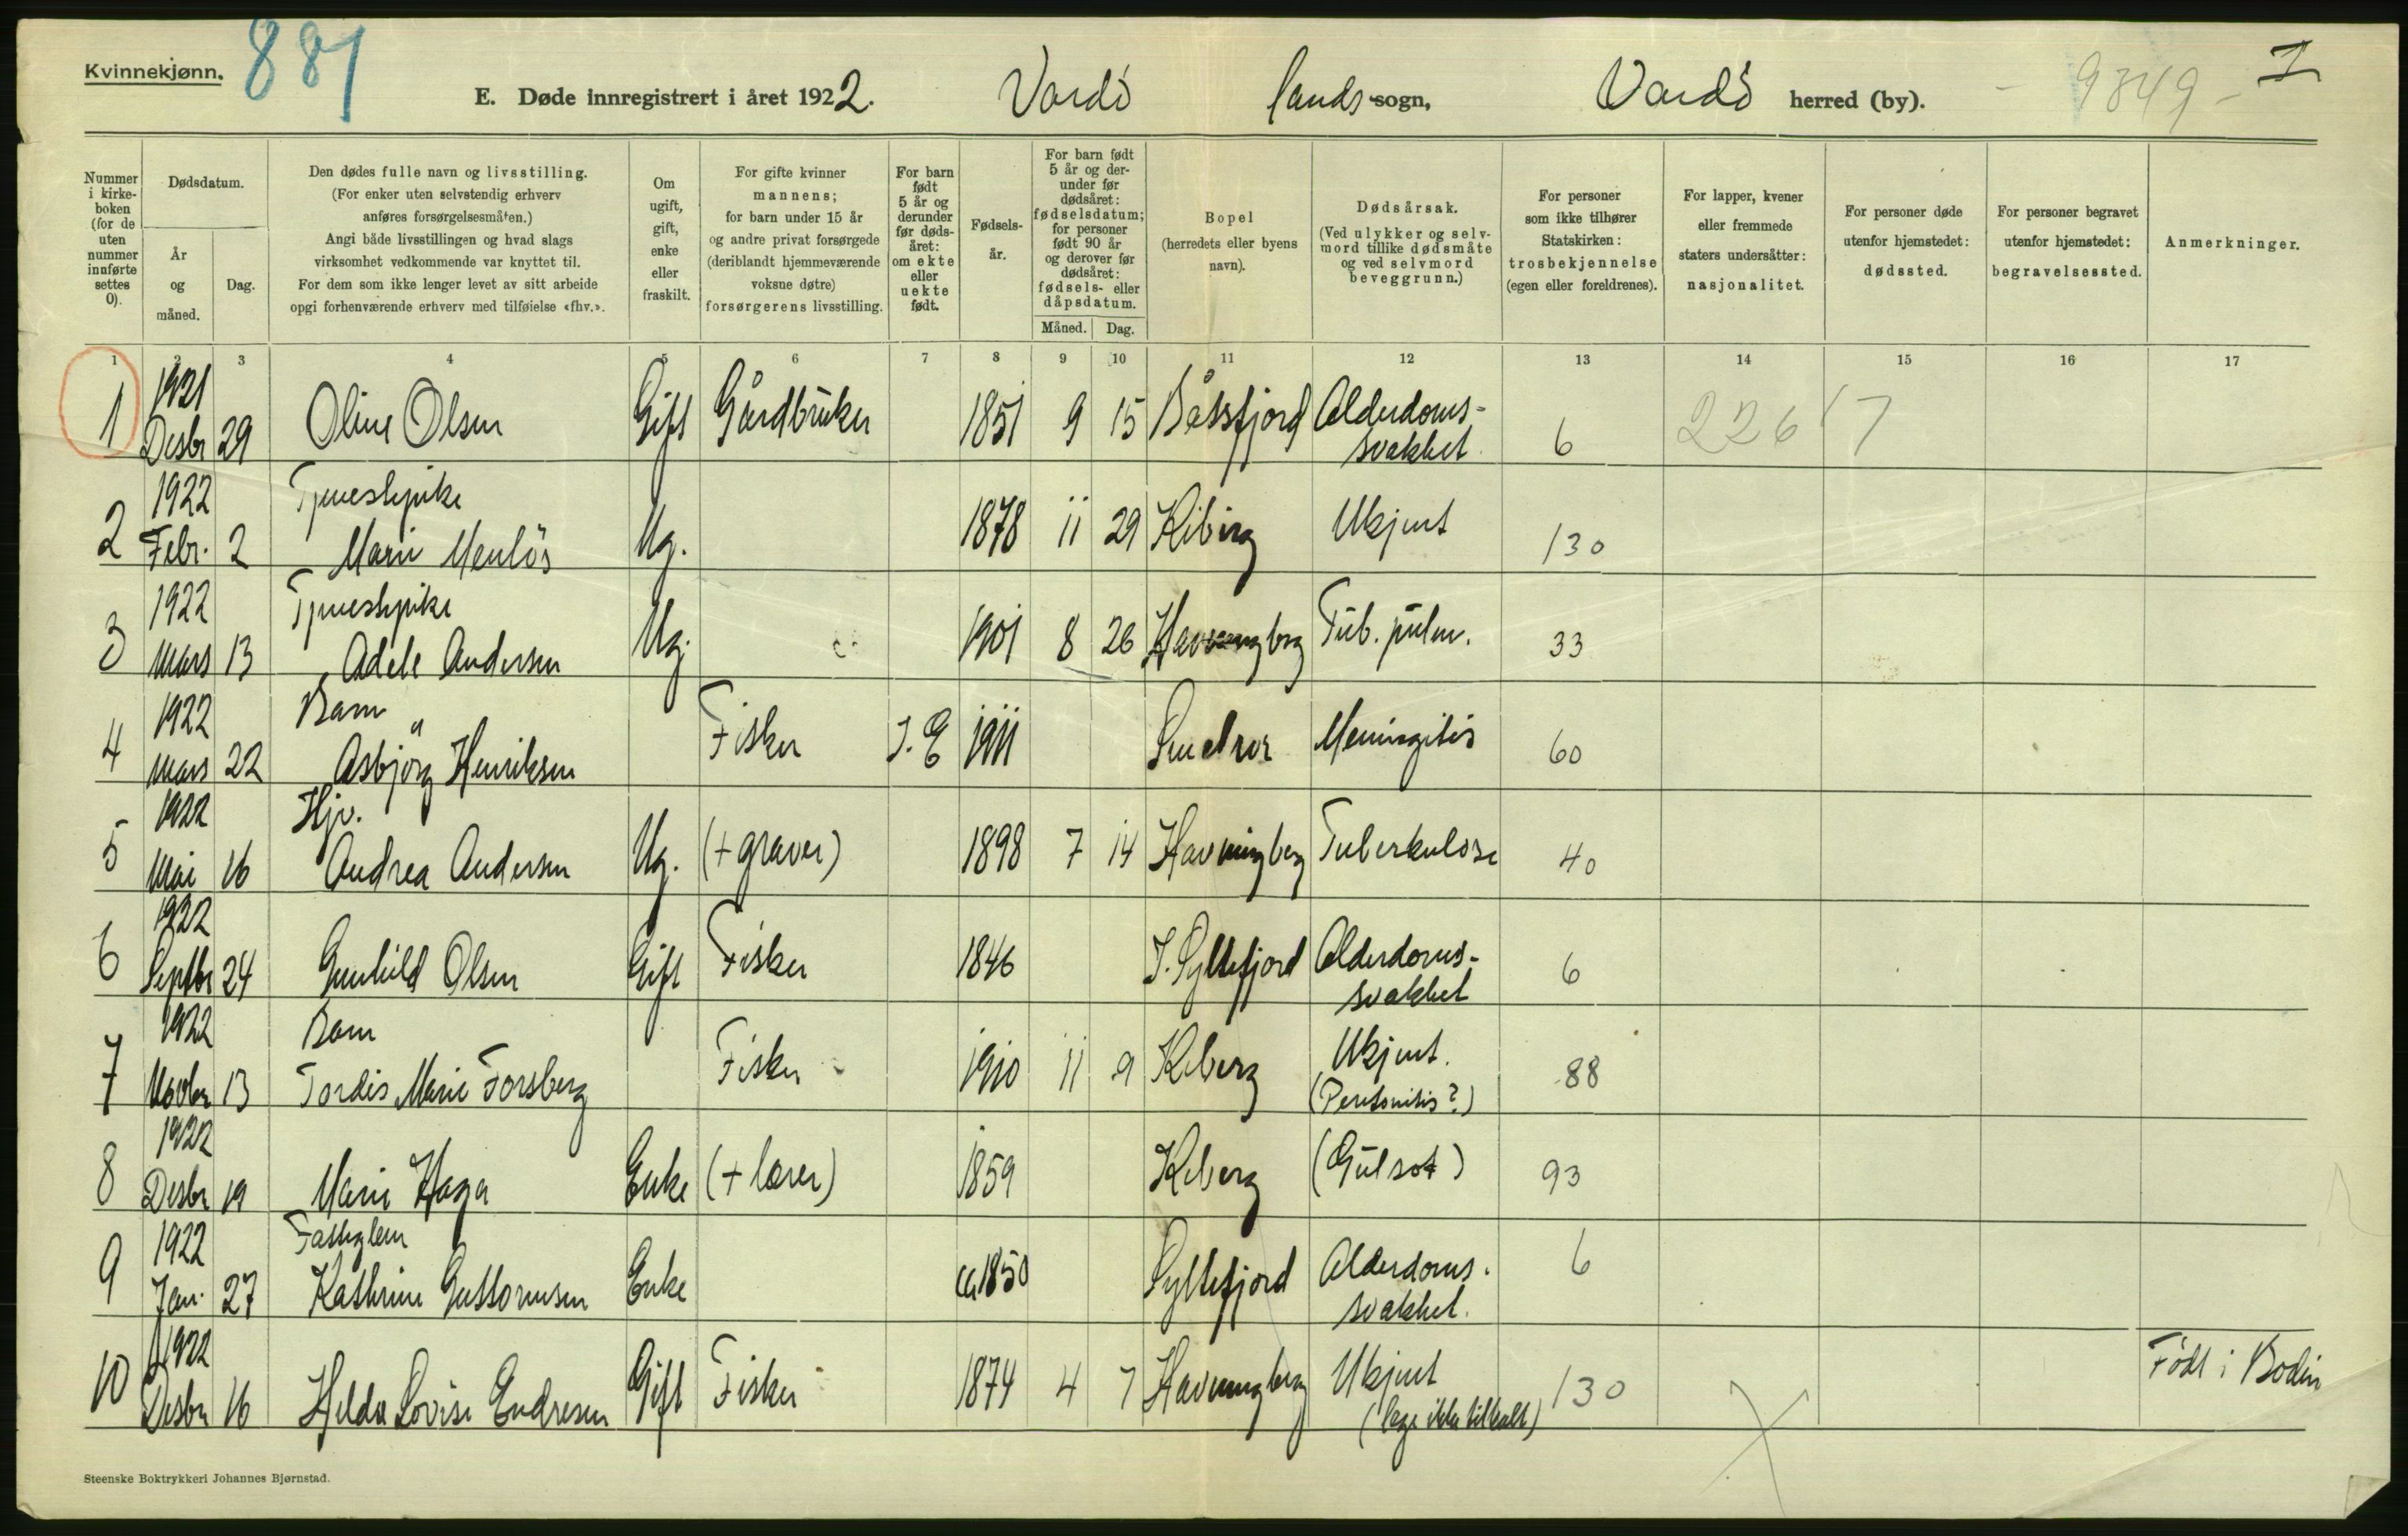 Kvinnekjønn.
887
E. Døde innregistrert i året 1922. Vardö lands-sogn, Vardö herred (by). 9349 - I
Nummer i kirke- boken (for de uten nummer innførte settes 0).
Dødsdatum.
År og måned.
Dag.
Den dødes fulle navn og livsstilling.
(For enker uten selvstendig erhverv
anføres forsørgelsesmåten.)
Angi både livsstillingen og hvad slags
virksomhet vedkommende var knyttet til.
For dem som ikke lenger levet av sitt arbeide
opgi forhenværende erhverv med tilføielse «fhv.».
Om ugift, gift, enke eller fraskilt.
For gifte kvinner
mannens;
for barn under 15 år
og andre privat forsørgede
(deriblandt hjemmeværende
voksne døtre)
forsørgerens livsstilling.
For barn født 5 år og derunder før døds- året: om ekte eller uekte født.
Fødsels- år.
For barn født 5 år og der- under før dødsåret: fødselsdatum; for personer født 90 år og derover før dødsåret: fødsels- eller dåpsdatum.
Måned. Dag.
Bopel
(herredets eller byens
navn).
Dødsårsak.
(Ved ulykker og selv-
mord tillike dødsmåte
og ved selvmord
beveggrunn.)
For personer
som ikke tilhører
Statskirken:
trosbekjennelse
(egen eller foreldrenes).
For lapper, kvener
eller fremmede
staters undersåtter:
nasjonalitet.
For personer døde
utenfor hjemstedet:
dødssted.
For personer begravet
utenfor hjemstedet:
begravelsessted.
Anmerkninger.
1 2 3 4 5 6 7 8 9 10 11 12 13 14 15 16 17
1921
1 Desbr 29 Oline Olsen Gift Gårdbruker 1851 9 15 Båtsfjord Alderdoms- 6 226 17
svakhet
1922 Tjenestepike
2 Febr. 2 Marie Menlös Ug. 1878 11 29 Kiberg Ukjent 130
1922 Tjenestepike
3 Mars 13 Adele Andersen Ug. 1901 8 26 Havningberg Tub. pulm. 33
1922 Barn
4 Mars 22 Asbjörg Henriksen Fisker J. E 1911 Smelror Meningitis 60
1922 Hjv.
5 Mai 16 Andrea Andersen Ug. (+ graver) 1898 7 14 Havningberg Tuberkulose 40
1922
6 Septbr 24 Gunhild Olsen Gift Fisker 1846 I. Syltefjord Alderdoms- 6
svakhet
1922 Barn
7 Novbr 13 Tordis Marie Forsberg Fisker 1910 11 9 Kiberg Ukjent. 88
(Peritonitis?)
1922
8 Desbr 19 Marie Haga Enke (+ lærer) 1859 Kiberg (Gulsot) 93
1922 Fattiglem
9 Jan. 27 Kathrine Guttormsen Enke ca 1850 Syltefjord Alderdoms- 6
svakhet.
1922
10 Desbr 16 Hilda Lovise Endresen Gift Fisker 1874 4 7 Havningberg Ukjent 130 Födt i Bodin
(læge ikke tilkalt)
Steenske Boktrykkeri Johannes Bjørnstad.